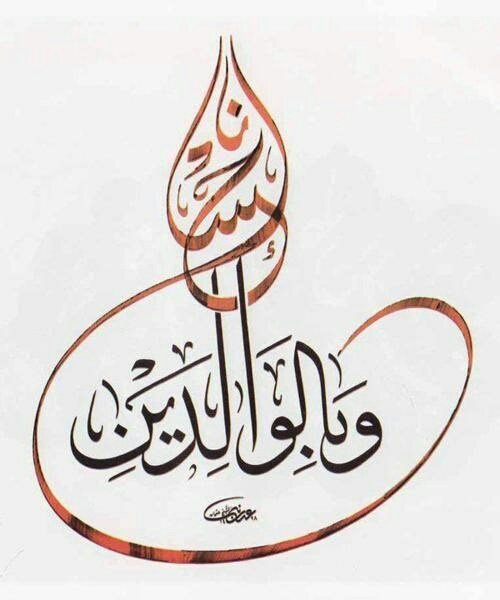 وَبِالْوَالِدَيْنِ
إِحْسَانًا